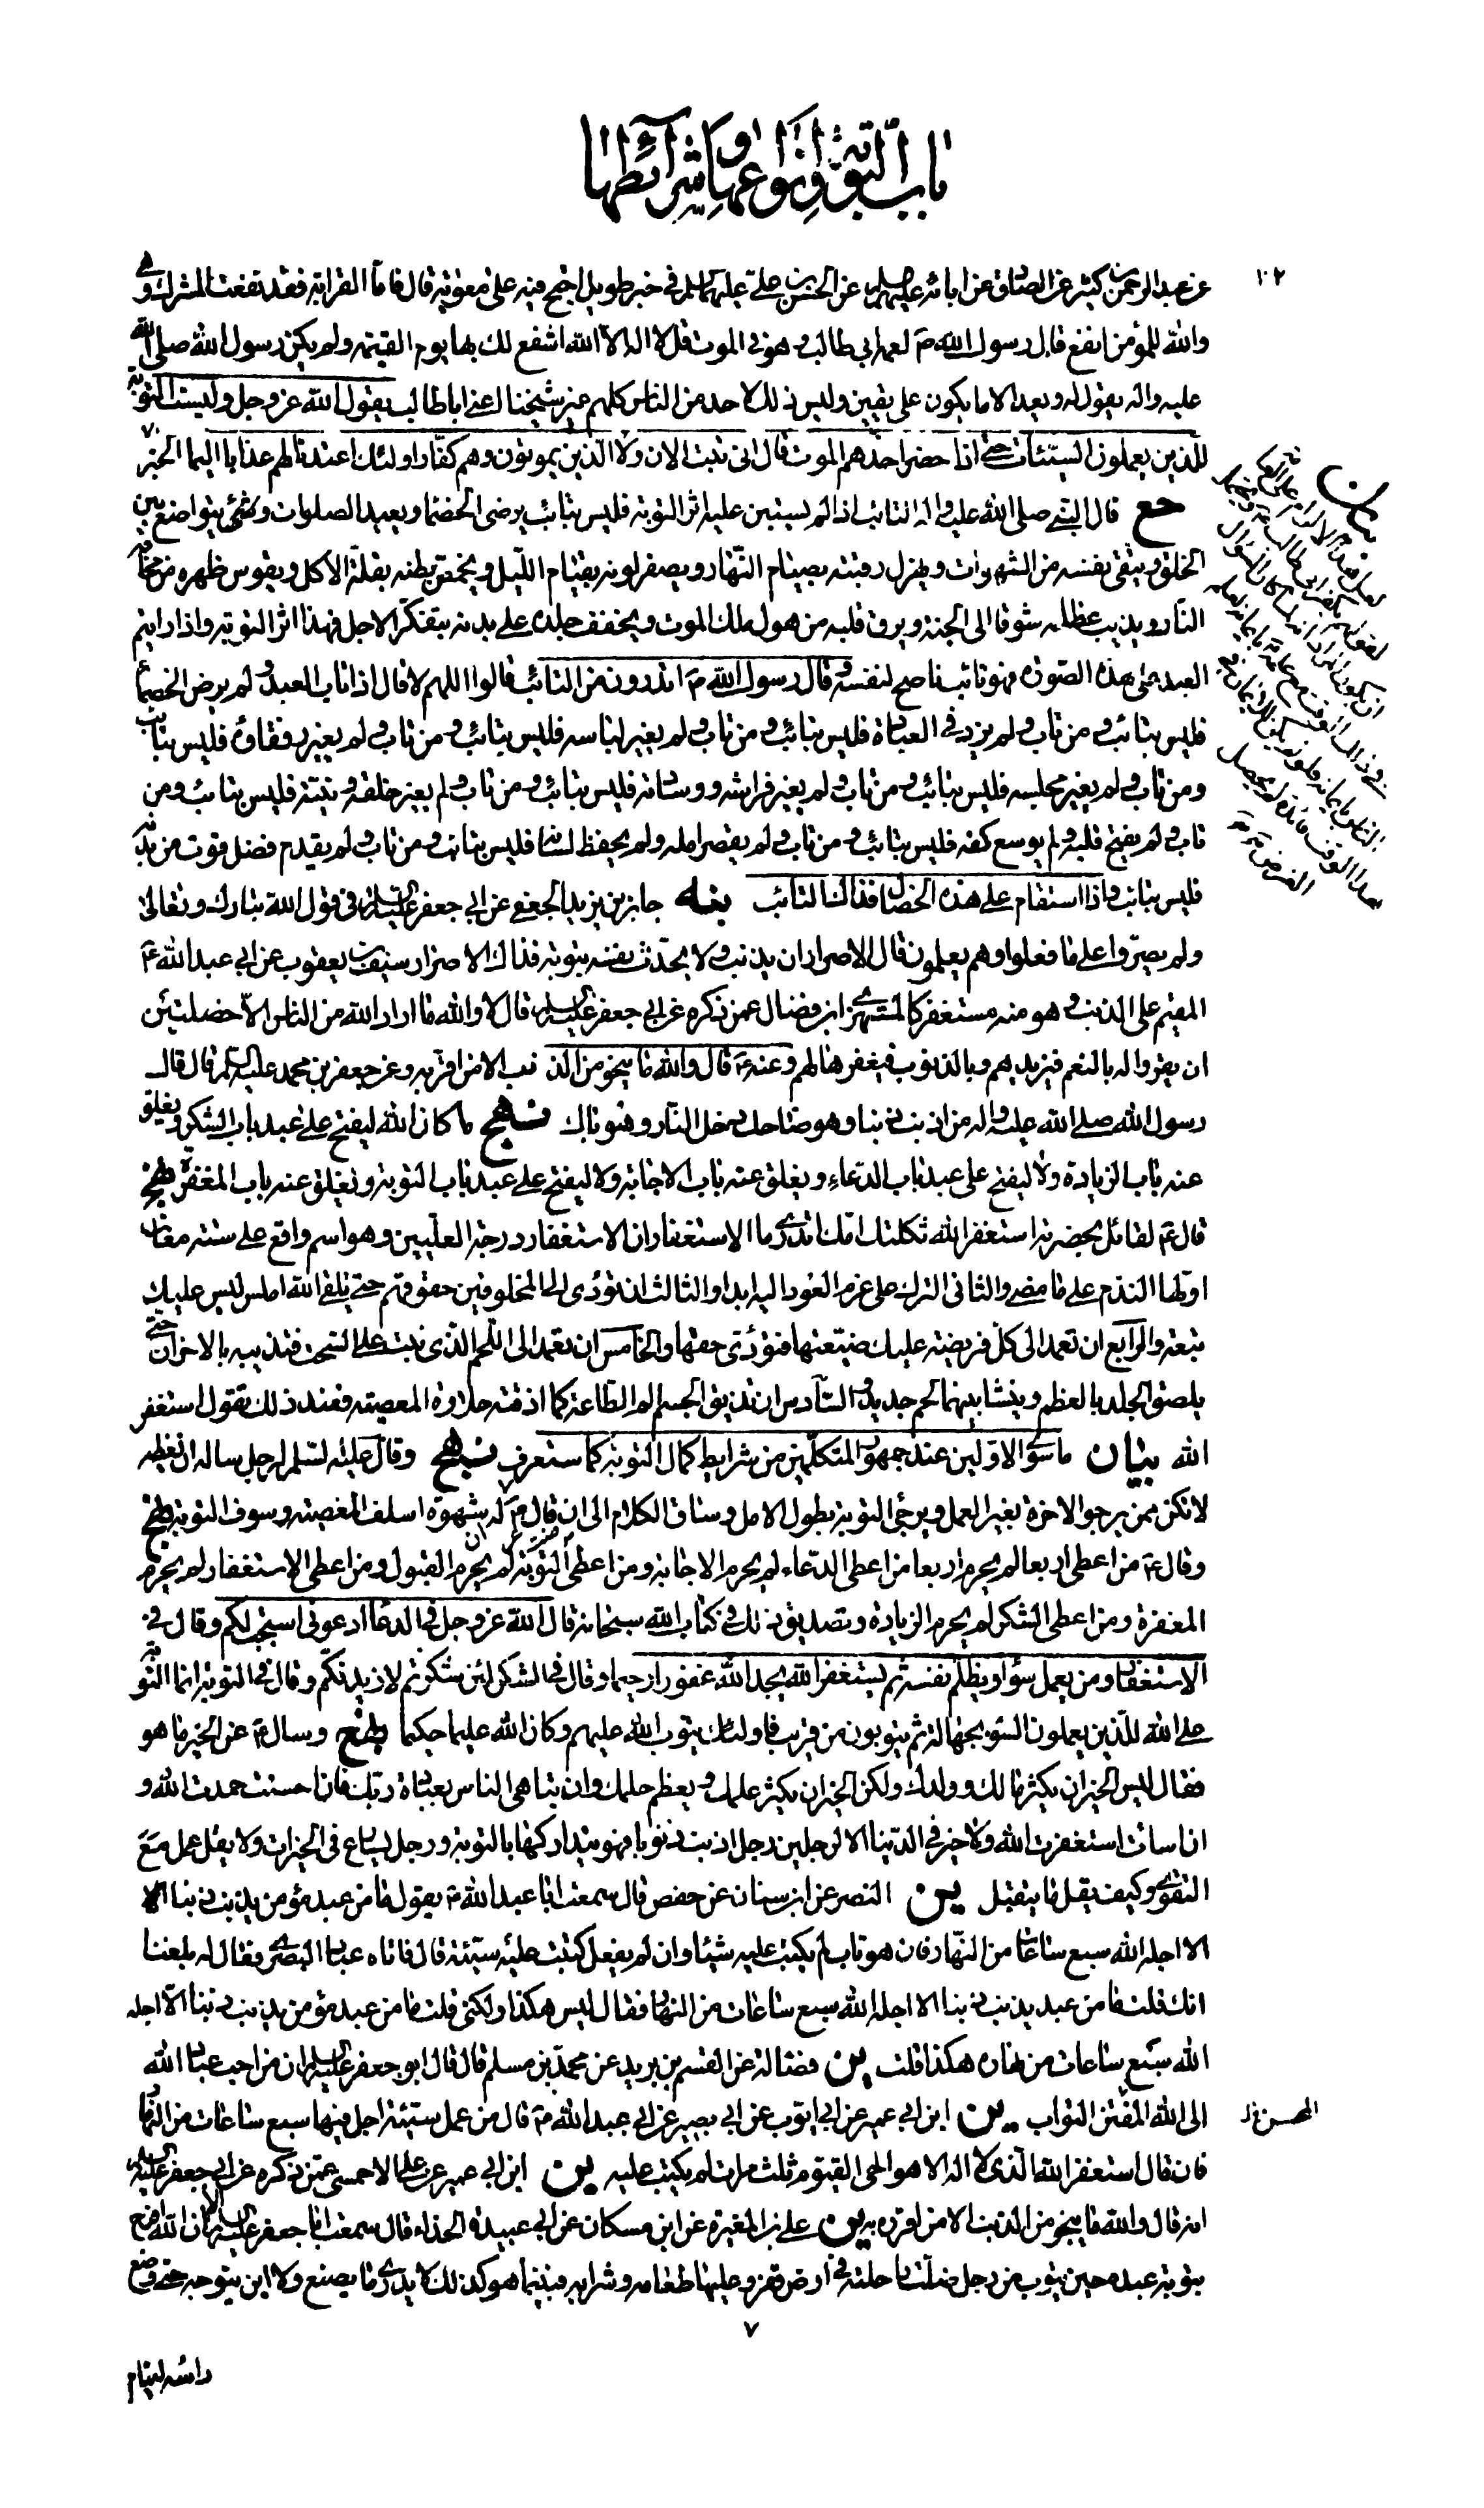 باب التوبة وانواعها وشرائطها
١٠٢
عن عبد الرحمن بن كثير عن الصادق عن ابائه عليهم السلم عن الحسن بن علي عليهما السلم في خبر طويل احتج فيه على معوية قال فاما القرابة فقد نفعت المشرك وهي
والله للمؤمن انفع قال رسول الله ص لعمه ابي طالب وهو في الموت قل لا اله الا الله اشفع لك بها يوم القيمة ولم يكن رسول الله صلى الله
عليه واله يقول له ويعد الا ما يكون على يقين وليس ذلك لاحد من الناس كلهم غير شيخنا اعني اباطالب يقول الله عز وجل وليست التوبة
للذين يعملون السيئات حتى اذا حضر احدهم الموت قال اني تبت الان ولا الذين يموتون وهم كفار اولئك اعتدنا لهم عذابا اليما الخبر
جع قال النبي صلى الله عليه واله التائب اذا لم يستبين عليه اثر التوبة فليس بتائب يرضى الخصماء ويعيد الصلوات ويتواضع بين
الخلق ويتقي نفسه من الشهوات ويهزل رقبته بصيام النهار ويصفر لونه بقيام الليل ويخمص بطنه بقلة الاكل ويقوس ظهره من مخافة
النار ويذيب عظامه شوقا الى الجنة ويرق قلبه من هول ملك الموت ويخفف جلده على بدنه بتفكر الاجل فهذا اثر التوبة واذا رايتم
العبد على هذه الصورة فهو تائب ناصح لنفسه وقال رسول الله ص اتدرون من التائب قالوا اللهم لا قال اذا تاب العبد ولم يرض الخصماء
فليس بتائب ومن تاب ولم يزد في العبادة فليس بتائب ومن تاب ولم يغير لباسه فليس بتائب ومن تاب ولم يغير رفقاؤه فليس بتائب
ومن تاب ولم يغير مجلسه فليس بتائب ومن تاب ولم يغير فراشه ووسادته فليس بتائب ومن تاب ولم يغير خلقه ونيته فليس بتائب ومن
تاب ولم يفتح قلبه ولم يوسع كفه فليس بتائب ومن تاب ولم يقصر امله ولم يحفظ لسانه فليس بتائب ومن تاب ولم يقدم فضل قوت من بدنه
فليس بتائب واذا استقام على هذه الخصال فذاك التائب جابر بن يزيد الجعفي عن ابي جعفر عليه السلم في قول الله تبارك وتعالى
ولم يصروا على ما فعلوا وهم يعلمون قال الاصرار ان يذنب ولا يحدث نفسه بتوبة فذاك الاصرار سيف بن يعقوب عن ابي عبد الله ع
المقيم على الذنب وهو منه مستغفر كالمستهزئ ابن فضال عمن ذكره عن ابي جعفر عليه السلم قال لا والله ما اراد الله من الناس الا خصلتين
ان يقروا له بالنعم فيزيدهم وبالذنوب فيغفرها لهم وعنه ع قال والله ما ينجو من الذنب الا من اقر به وعن جعفر بن محمد عليه السلم قال قال
رسول الله صلى الله عليه واله من اذنب ذنبا وهو ضاحك دخل النار وهو باك نهج ما كان الله ليفتح على عبد باب الشكر ويغلق
عنه باب الزيادة ولا ليفتح على عبد باب الدعاء ويغلق عنه باب الاجابة ولا ليفتح على عبد باب التوبة ويغلق عنه باب المغفرة نهج
قال ع لقائل بحضرته استغفر الله ثكلتك امك اتدري ما الاستغفار ان الاستغفار درجة العليين وهو اسم واقع على ستة معان
اولها الندم على ما مضى والثاني الترك على عزم العود اليه ابدا والثالث ان تؤدي الى المخلوقين حقوقهم حتى تلقى الله املس ليس عليك
تبعة والرابع ان تعمد الى كل فريضة عليك ضيعتها فتؤدي حقها والخامس ان تعمد الى اللحم الذي نبت على السحت فتذيبه بالاحزان حتى
يلصق الجلد بالعظم وينشا بينهما لحم جديد والسادس ان تذيق الجسم الم الطاعة كما اذقته حلاوة المعصية فعند ذلك تقول استغفر
الله بيان ما سوى الاولين عند جمهور المتكلمين من شرايط كمال التوبة كما ستعرف نهج وقال عليه السلم لرجل ساله ان يعظه
لا تكن ممن يرجو الاخرة بغير العمل ويرجي التوبة بطول الامل وساق الكلام الى ان قال ان عرضت له شهوة اسلف المعصية وسوف التوبة نهج
وقال ع من اعطي اربعا لم يحرم اربعا من اعطي الدعاء لم يحرم الاجابة ومن اعطي التوبة لم يحرم القبول ومن اعطي الاستغفار لم يحرم
المغفرة ومن اعطي الشكر لم يحرم الزيادة وتصديق ذلك في كتاب الله سبحانه قال الله عز وجل في الدعاء ادعوني استجب لكم وقال في
الاستغفار ومن يعمل سوءا او يظلم نفسه ثم يستغفر الله يجد الله غفورا رحيما وقال في الشكر لئن شكرتم لازيدنكم وقال في التوبة انما التوبة
على الله للذين يعملون السوء بجهالة ثم يتوبون من قريب فاولئك يتوب الله عليهم وكان الله عليما حكيما نهج وسال ع عن الخير ما هو
فقال ليس الخير ان يكثر مالك وولدك ولكن الخير ان يكثر علمك ويعظم حلمك وان تباهي الناس بعبادة ربك فان احسنت حمدت الله و
ان اسات استغفرت الله ولا خير في الدنيا الا لرجلين رجل اذنب ذنوبا فهو يتداركها بالتوبة ورجل يسارع في الخيرات ولا يقل عمل مع
التقوى وكيف يقل ما يتقبل ين النضر عن ابن سنان عن حفص قال سمعت ابا عبد الله ع يقول ما من عبد مؤمن يذنب ذنبا الا
الا اجله الله سبع ساعات من النهار فان هو تاب لم يكتب عليه شيئا وان لم يفعل كتبت عليه سيئة قال فاتاه عباد البصري فقال له بلغنا
انك قلت ما من عبد يذنب ذنبا الا اجله الله سبع ساعات من النهار فقال ليس هكذا ولكني قلت ما من عبد مؤمن يذنب ذنبا الا اجله
الله سبع ساعات من نهاره هكذا قلت ين فضالة عن القسم بن بريد عن محمد بن مسلم قال قال ابو جعفر عليه السلم ان من احب عباد الله
الى الله المفتن التواب ين ابن ابي عمير عن ابي ايوب عن ابي بصير عن ابي عبد الله ع قال من عمل سيئة اجل فيها سبع ساعات من النهار
المحسن
فان قال استغفر الله الذي لا اله الا هو الحي القيوم ثلث مرات لم يكتب عليه ين ابن ابي عمير عن علي الاحمسي عمن ذكره عن ابي جعفر عليه السلم
انه قال والله ما ينجو من الذنب الا من اقر به ين علي بن المغيرة عن ابن مسكان عن ابي عبيدة الحذاء قال سمعت ابا جعفر عليه السلم يقول الا ان الله افرح
بتوبة عبده حين يتوب من رجل ضلت راحلته في ارض قفر وعليها طعامه وشرابه فبينما هو كذلك لا يدري ما يصنع ولا اين يتوجه حتى وضع
٧
راسه لينام